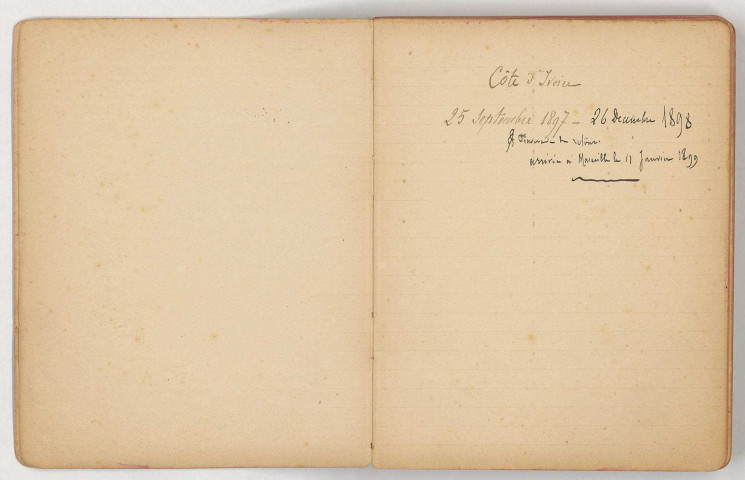 Côte d'Ivoire
25 Septembre 1897 - 26 Decembre 1898
& Itineraire de retour.
arrivée a Marseille le 11 Janvier 1899